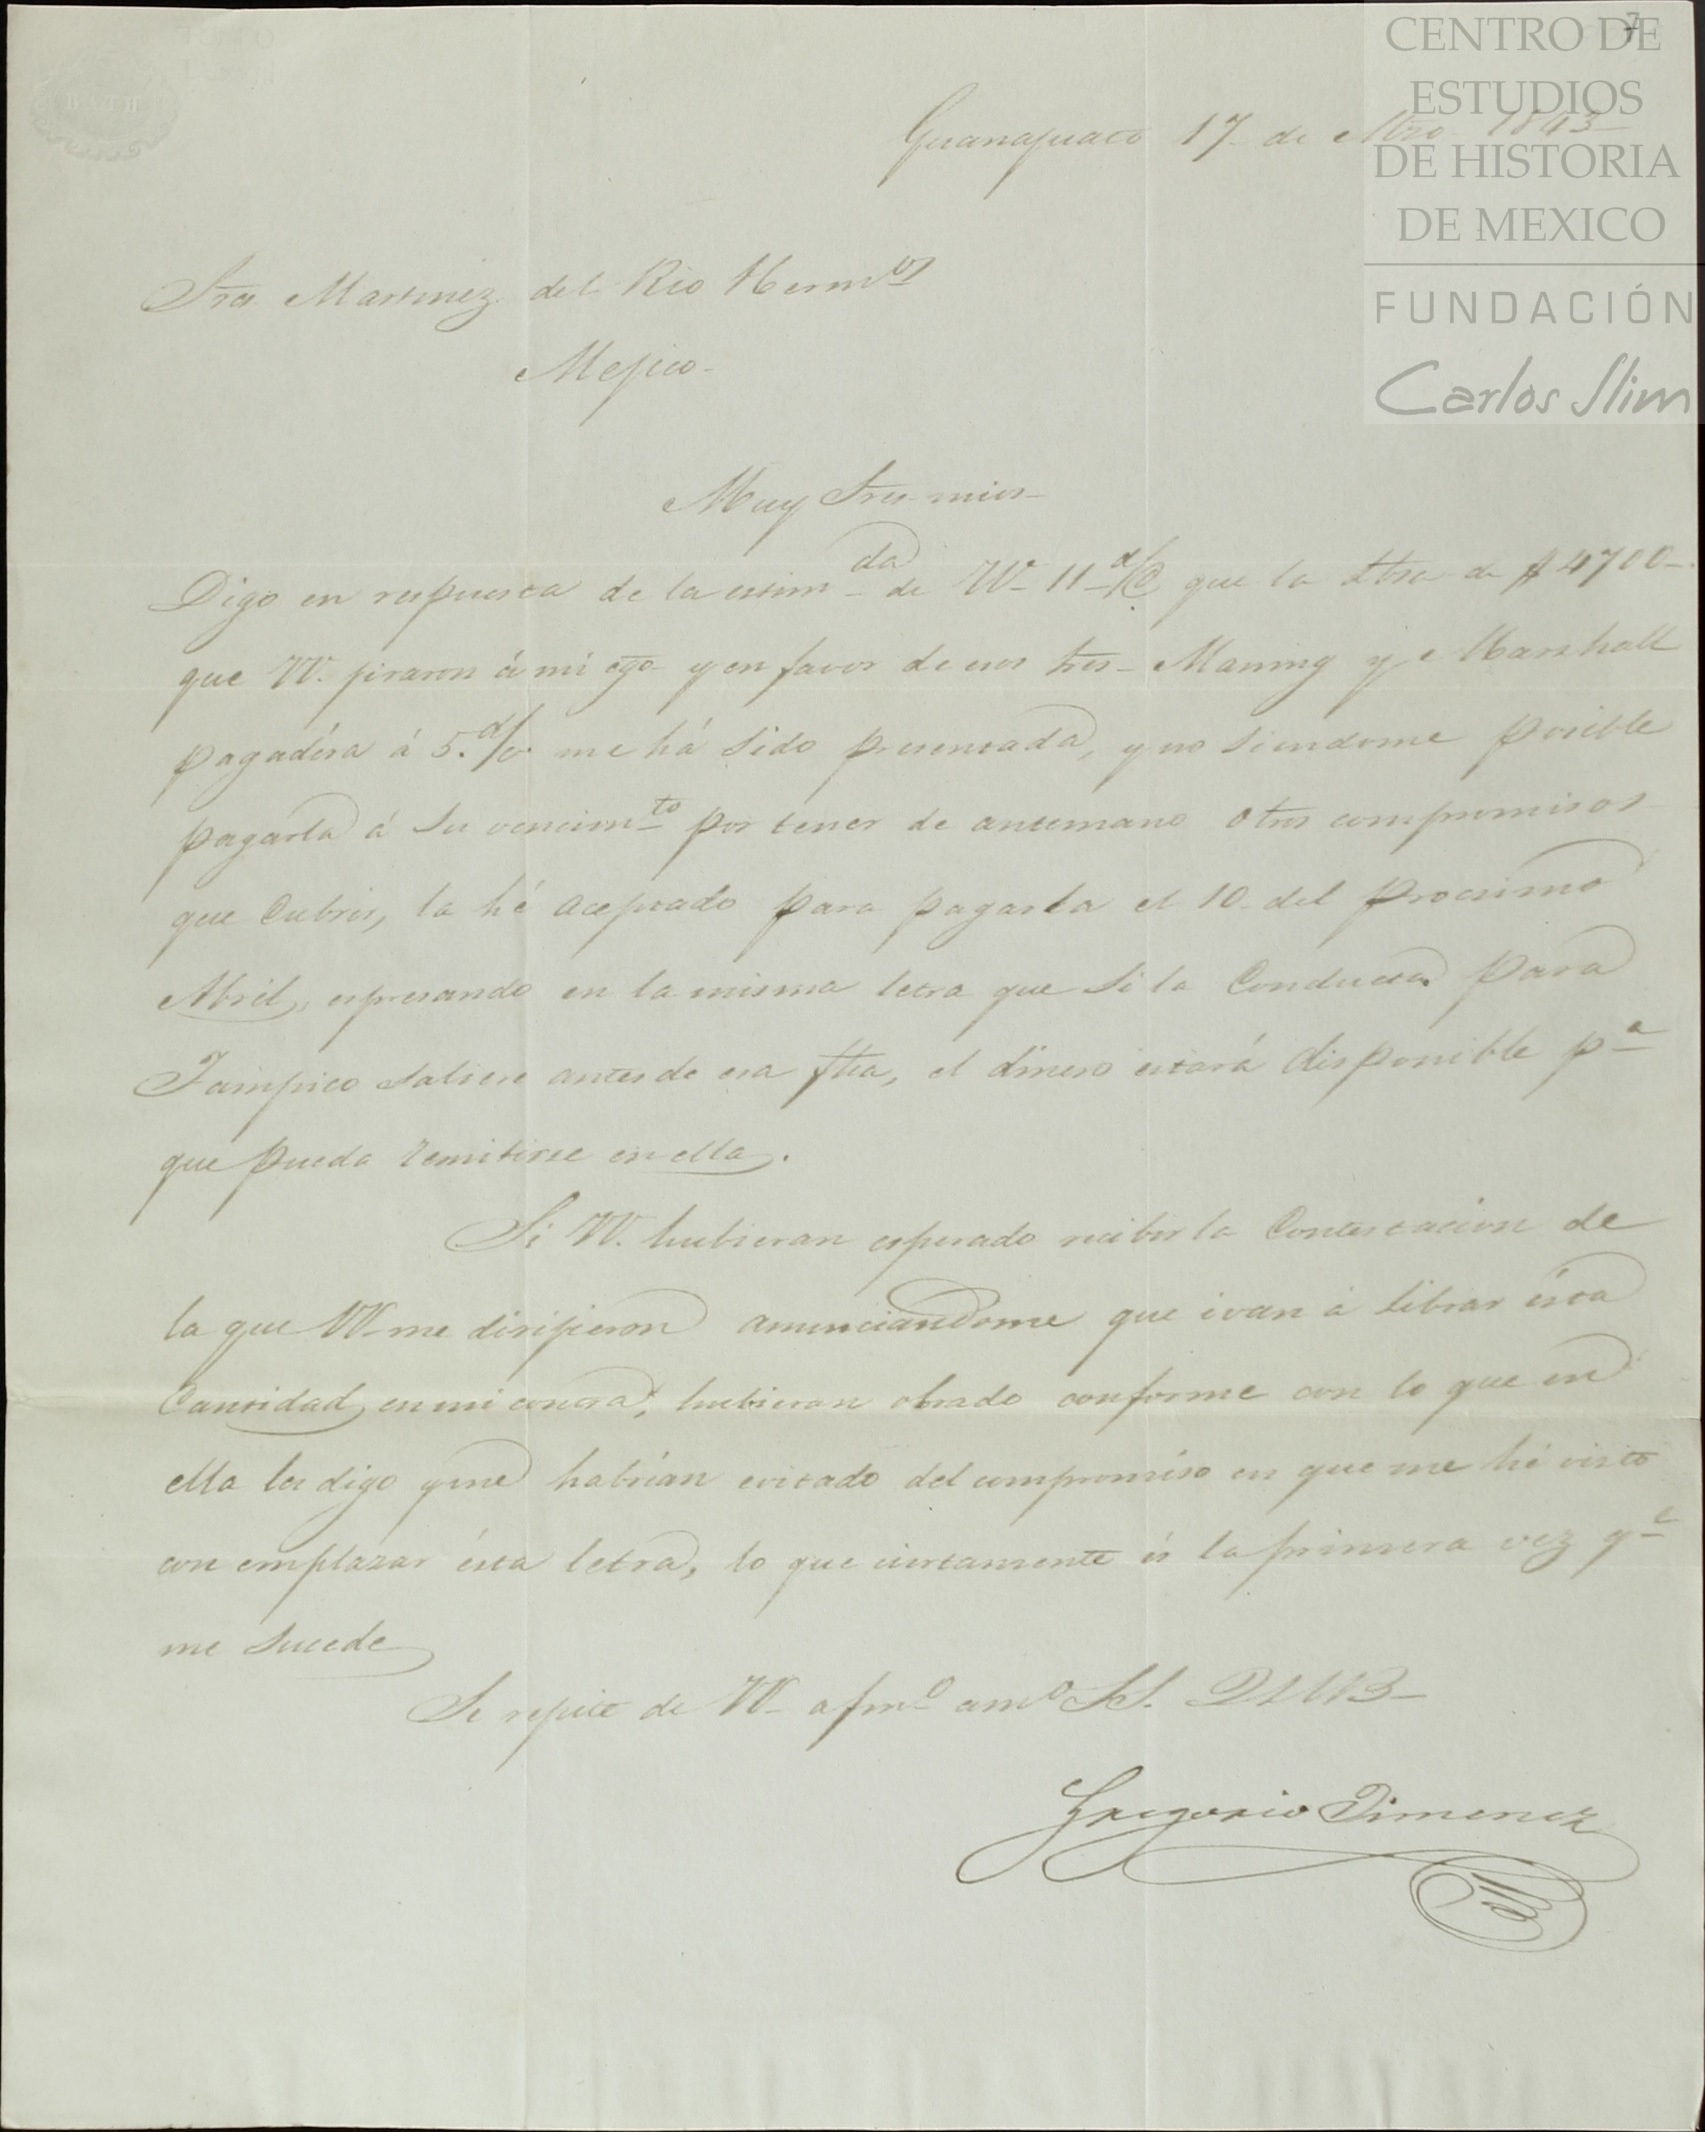 7
CENTRO DE
ESTUDIOS
DE HISTORIA
DE MEXICO
FUNDACIÓN
Carlos Slim
BATH
Guanajuato 17 de Mzo 1843
Sres Martinez del Rio Herm.os
Mejico
Muy Sres mios
Digo en respuesta de la estim.da de VV. 11 d/C que la Ltra de $ 4700
que VV. jiraron á mi cgo y en favor de esos Sres Maning y Marshall
pagadéra á 5 d/v. me há sido presentada, y no siendome posible
pagarla á su vencim.to por tener de antemano otros compromisos
que cubrir, la hé aceptado para pagarla el 10 del procsimo
Abril, espresando en la misma letra que si la Conducta para
Tampico saliere antes de esa fha, el dinero estará disponible p.a
que pueda remitirse en ella.
Si VV. hubieran esperado recibir la Contestacion de
la que VV. me dirijieron anunciandome que ivan á librar ésta
Cantidad en mi contra, hubieran obrado conforme con lo que en
ella les digo y me habrían evitado del compromiso en que me hé visto
con emplazar ésta letra, lo que ciertamente és la primera vez q.e
me sucede
Se repite de VV. afmo. amo. SS. QSMB
Gregorio Jimenez